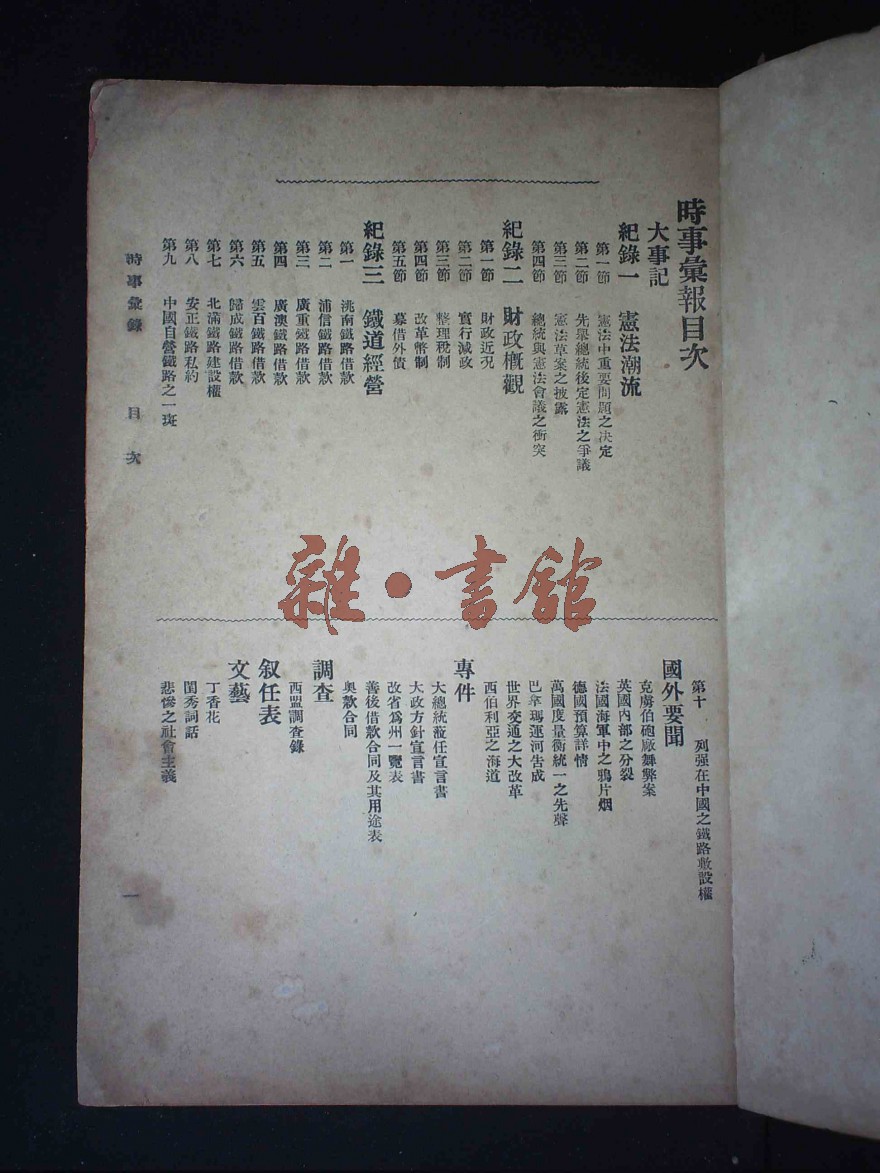 時事彙報目次
大事記
紀錄一 憲法潮流
第一節 憲法中重要問題之決定
第二節 先舉總統後定憲法之爭議
第三節 憲法草案之披露
第四節 總統與憲法會議之衝突
紀錄二 財政槪觀
第一節 財政近况
第二節 實行減政
第三節 整理稅制
第四節 改革幣制
第五節 募借外債
紀錄三 鐵道經營
第一 洮南鐵路借款
第二 浦信鐵路借款
第三 廣重鐵路借款
第四 廣澳鐵路借款
第五 雲百鐵路借款
第六 歸成鐵路借款
第七 北滿鐵路建設權
第八 安正鐵路私約
第九 中國自營鐵路之一斑
時事彙錄 目次
第十 列强在中國之鐵路敷設權
國外要聞
克虜伯砲廠舞弊案
英國內部之分裂
法國海軍中之鴉片烟
德國預算詳情
萬國度量衡統一之先聲
巴拿瑪運河告成
世界交通之大改革
西伯利亞之海道
專件
大總統蒞任宣言書
大政方針宣言書
改省爲州一覽表
善後借款合同及其用途表
奥款合同
調查
西盟調查錄
叙任表
文藝
丁香花
閨秀詞話
悲慘之社會主義
一
雜·書館